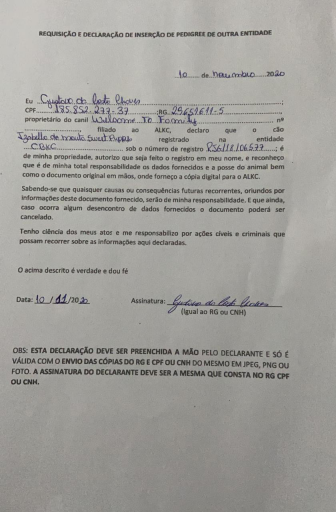 REQUISIÇÃO E DECLARAÇÃO DE INSERÇÃO DE PEDIGREE DE OUTRA ENTIDADE
10 de novembro 2020
Eu Gustavo da Costa
CPF 185.852.277-37 ;RG 29651611-5
proprietário do canil Welcome To Family nº
filiado ao ALKC, declaro que o cão
Izabella de monte Sweet registrado na entidade
CBKC sob o número de registro RSG/18/06577 ; é
de minha propriedade, autorizo que seja feito o registro em meu nome, e reconheço
que é de minha total responsabilidade os dados fornecidos e a posse do animal bem
como o documento original em mãos, onde forneço a cópia digital para o ALKC.
Sabendo-se que quaisquer causas ou consequências futuras recorrentes, oriundos por
informações deste documento fornecido, serão de minha responsabilidade. E que ainda,
caso ocorra algum desencontro de dados fornecidos o documento poderá ser
cancelado.
Tenho ciência dos meus atos e me responsabilizo por ações cíveis e criminais que
possam recorrer sobre as informações aqui declaradas.
O acima descrito é verdade e dou fé
Data: 10 / 11 /2020 Assinatura: Gustavo da Costa
(Igual ao RG ou CNH)
OBS: ESTA DECLARAÇÃO DEVE SER PREENCHIDA A MÃO PELO DECLARANTE E SÓ É
VÁLIDA COM O ENVIO DAS CÓPIAS DO RG E CPF OU CNH DO MESMO EM JPEG, PNG OU
FOTO. A ASSINATURA DO DECLARANTE DEVE SER A MESMA QUE CONSTA NO RG CPF
OU CNH.